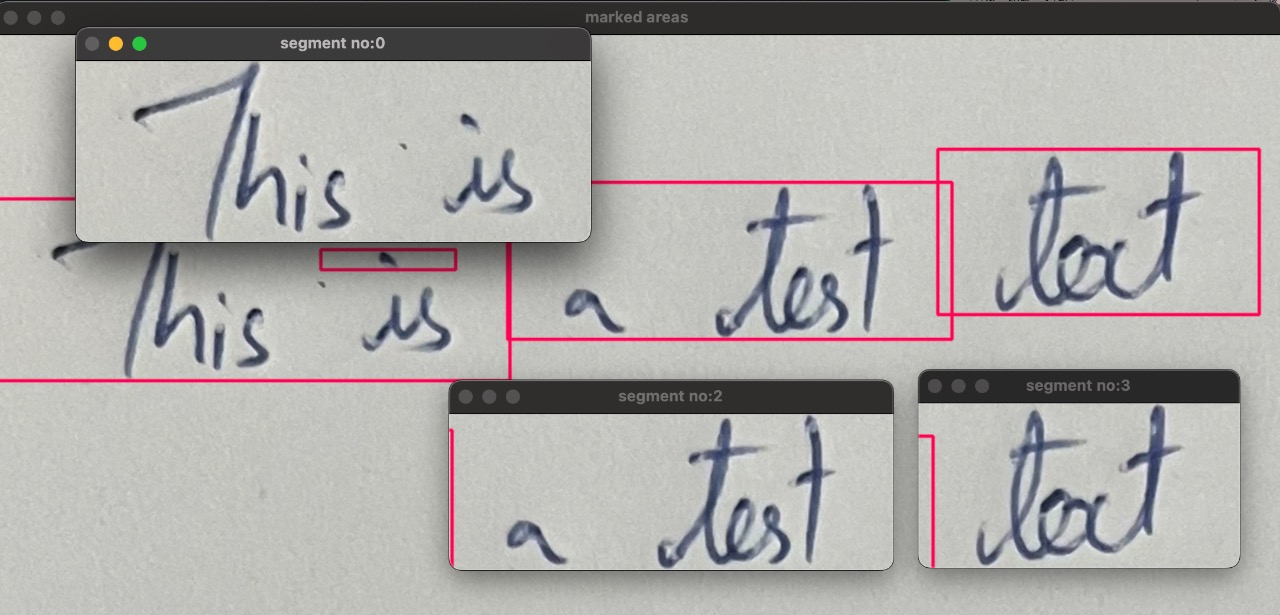 marked areas
segment no:0
This is
This is a test text
segment no:2
a test
segment no:3
text